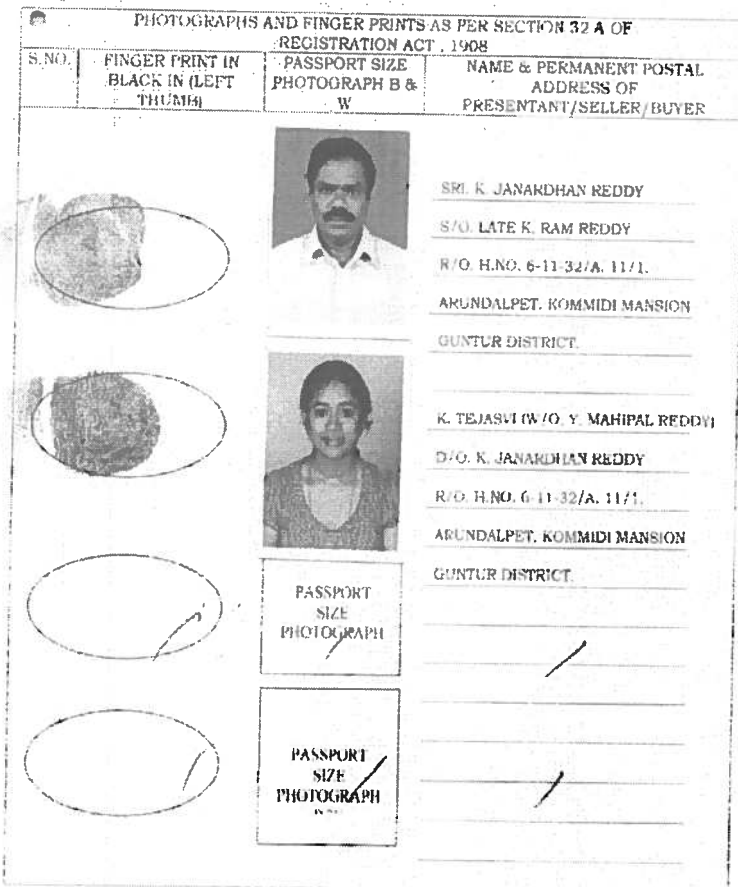 PHOTOGRAPHS AND FINGER PRINTS AS PER SECTION 32 A OF
REGISTRATION ACT , 1908
S.NO.
FINGER PRINT IN
BLACK IN (LEFT
THUMB)
PASSPORT SIZE
PHOTOGRAPH B &
W
NAME & PERMANENT POSTAL
ADDRESS OF
PRESENTANT/SELLER/BUYER
SRI. K. JANARDHAN REDDY
S/O. LATE K. RAM REDDY
R/O. H.NO. 6-11-32/A. 11/1.
ARUNDALPET. KOMMIDI MANSION
GUNTUR DISTRICT.
K. TEJASVI (W/O. Y. MAHIPAL REDDY)
D/O. K. JANARDHAN REDDY
R/O. H.NO. 6-11-32/A. 11/1.
ARUNDALPET. KOMMIDI MANSION
GUNTUR DISTRICT.
PASSPORT
SIZE
PHOTOGRAPH
PASSPORT
SIZE
PHOTOGRAPH